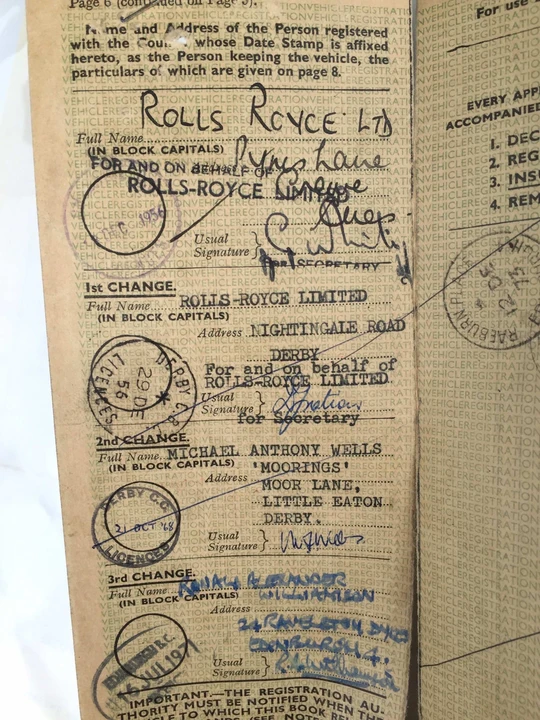 Page 6 (continued on Page 5).
Name and Address of the Person registered
with the Council whose Date Stamp is affixed
hereto, as the Person keeping the vehicle, the
particulars of which are given on page 8.
ROLLS ROYCE LTD
Full Name
(IN BLOCK CAPITALS)
Pyms Lane
FOR AND ON BEHALF OF
Crewe
ROLLS-ROYCE LIMITED
1956
Usual
Signature
SECRETARY
1st CHANGE.
Full Name ROLLS-ROYCE LIMITED
(IN BLOCK CAPITALS)
Address NIGHTINGALE ROAD
DERBY
For and on behalf of
ROLLS-ROYCE LIMITED.
DERBY C.B.
29 DE
56
LICENCES
Usual
Signature
for Secretary
2nd CHANGE.
Full Name MICHAEL ANTHONY WELLS
(IN BLOCK CAPITALS)
'MOORINGS'
Address
MOOR LANE,
LITTLE EATON
DERBY.
DERBY C.C.
21 OCT '68
LICENCES
Usual
Signature
3rd CHANGE.
Full Name RONALD ALEXANDER
WILLIAMSON
(IN BLOCK CAPITALS)
Address
24 RAVELSTON DYKES
EDINBURGH 4.
EDINBURGH B.C.
JUL 197
Usual
Signature
IMPORTANT.—THE REGISTRATION AU-
THORITY MUST BE NOTIFIED WHEN THE
TO WHICH THIS BOOK
For use
EVERY APP
ACCOMPANIED
1. DEC
2. REG
3. INS
4. REM